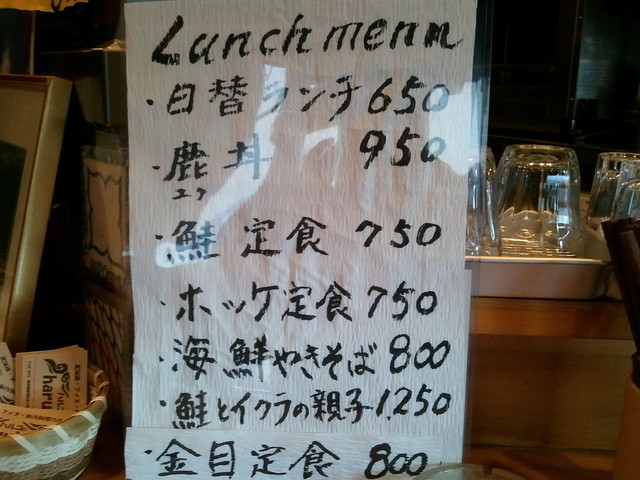 Lunch menu
・日替ランチ 650
・鹿丼 950
エゾ
・鮭定食 750
・ホッケ定食 750
・海鮮やきそば 800
・鮭とイクラの親子 1,250
・金目定食 800
haru